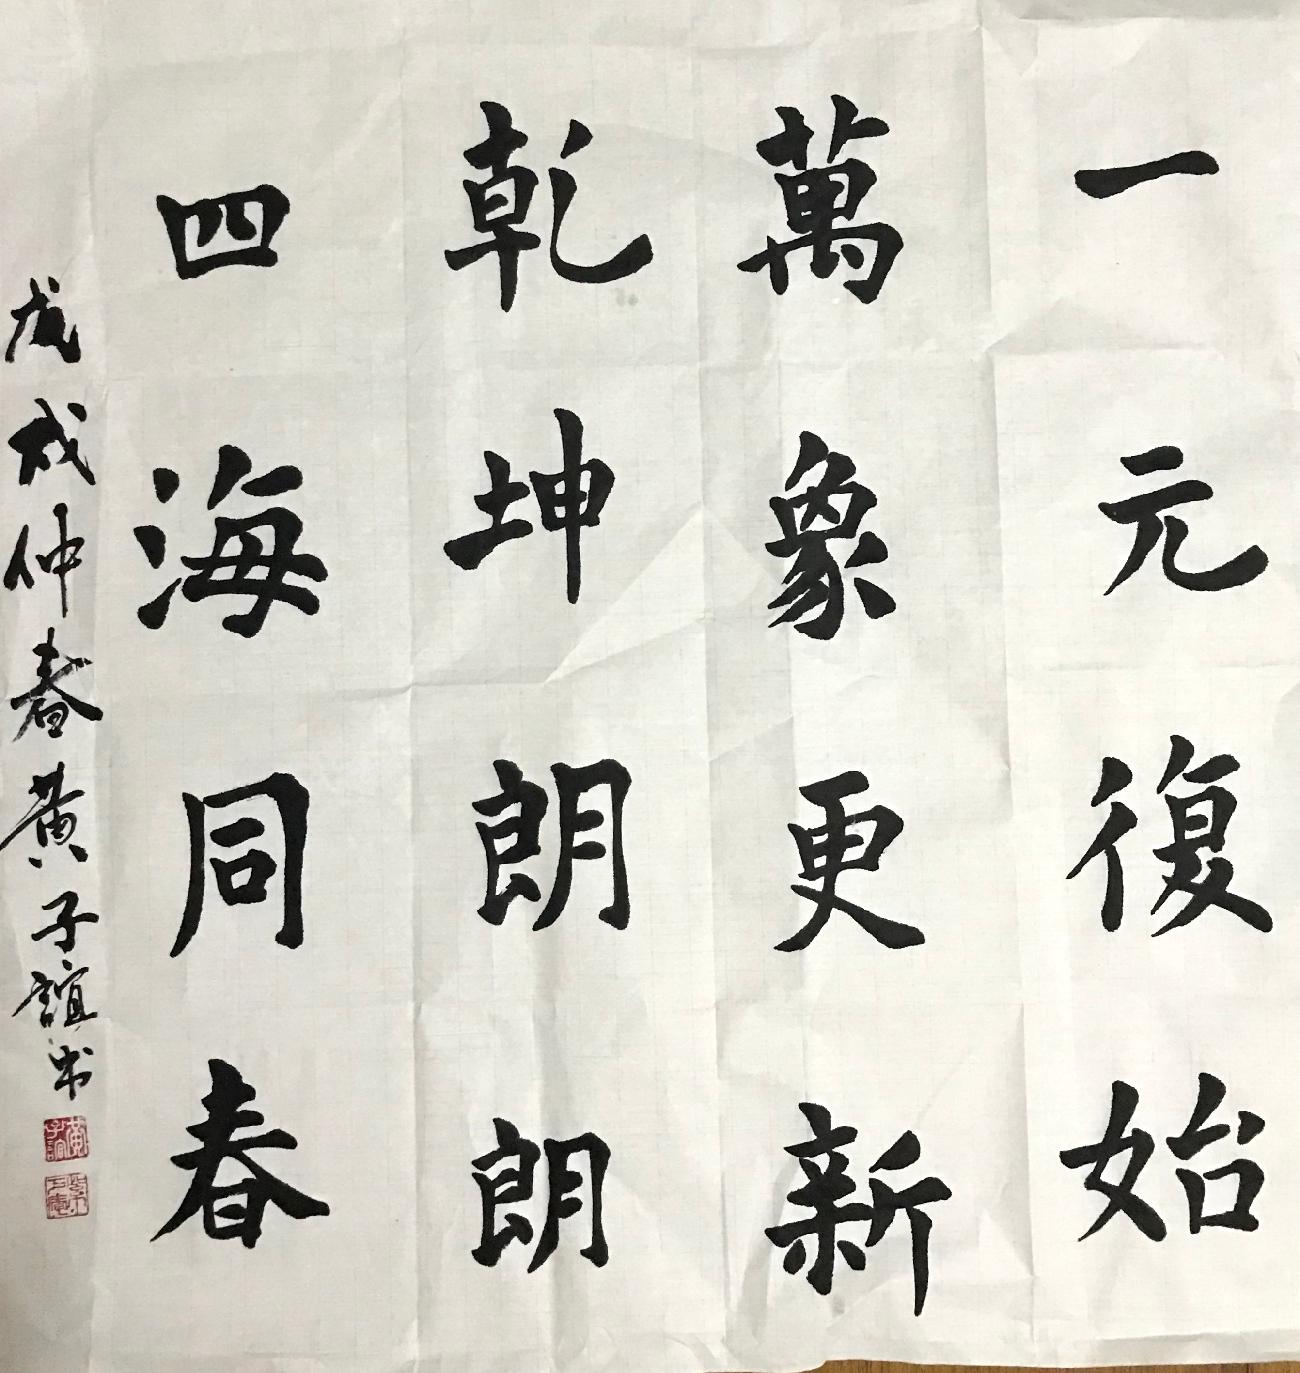 一元復始
萬象更新
乾坤朗朗
四海同春
戊戌仲春黄子誼书